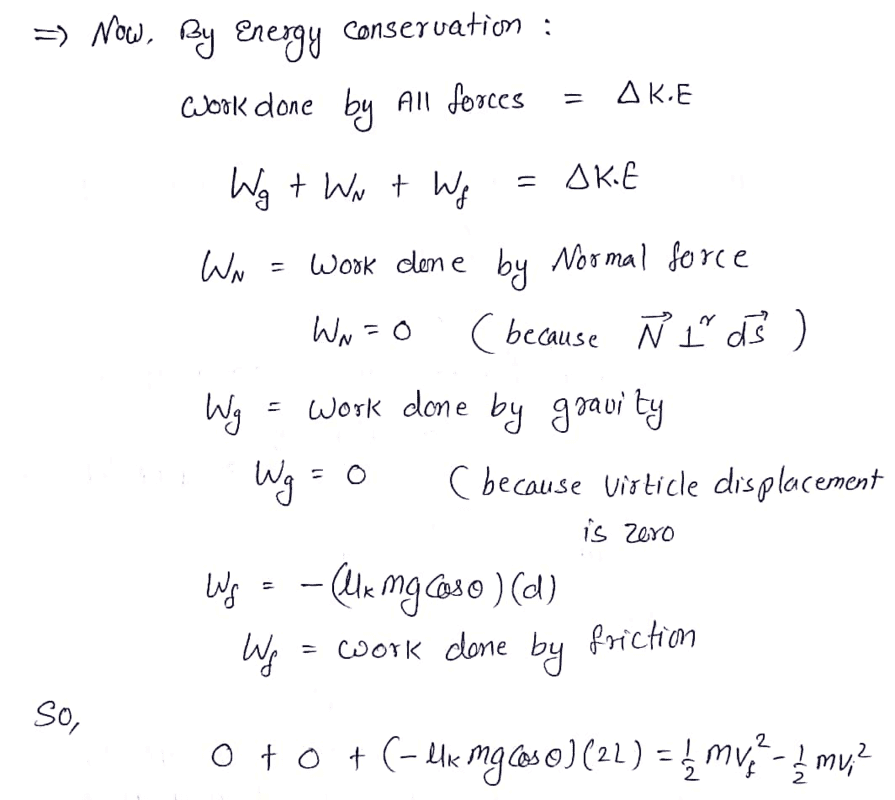 ⇒ Now, By Energy Conservation :
Work done by All forces = ΔK.E
Wg + WN + Wf = ΔK.E
WN = Work done by Normal force
WN = 0 ( because N⃗ ⊥r ds⃗ )
Wg = Work done by gravity
Wg = 0 ( because virticle displacement
is zero
Wf = - (μk mg cosθ) (d)
Wf = work done by friction
So,
0 + 0 + (- μk mg cosθ) (2L) = 1/2 mvf² - 1/2 mvi²